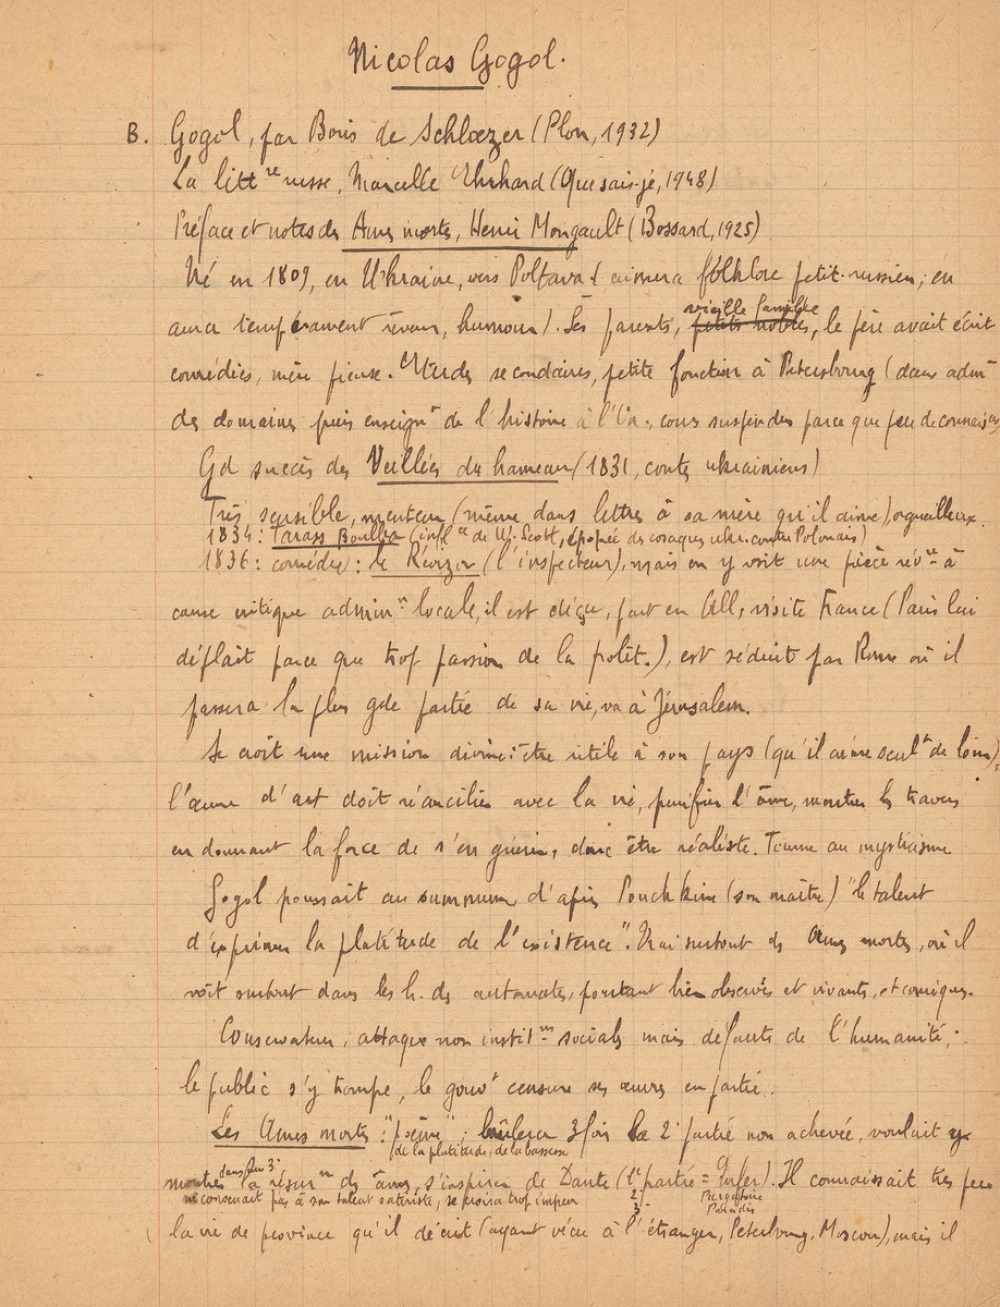 Nicolas Gogol.
B. Gogol, par Boris de Schlœzer (Plon, 1932)
La litt.re russe, Marcelle Ehrhard (Que sais-je, 1948)
Préface et notes des Ames mortes, Henri Mongault (Bossard, 1925)
Né en 1809, en Ukraine, vers Poltava (aimera folklore petit-russien, en
vieille famille
aura tempérament rêveur, humour). Ses parents, petits nobles, le père avait écrit
comédies, mère pieuse. Etudes secondaires, petite fonction à Petersbourg (dans admn
des domaines puis enseignt de l'histoire à l'Un., cours suspendus parce que peu de connaisces)
Gd succès des Veillées du hameau (1831, contes ukrainiens)
Très sensible, menteur (même dans lettres à sa mère qu'il aime), orgueilleux.
1834: Tarass Boulba (inflce de W. Scott, épopée des cosaques ukr. contre Polonais)
1836: comédie: le Révizor (l'inspecteur), mais on y voit une pièce révre à
cause critique adminon locale, il est déçu, part en All, visite France (Paris lui
déplaît parce que trop passion de la polit.), est séduit par Rome où il
passera la plus gde partie de sa vie, va à Jérusalem.
Se croit une mission divine: être utile à son pays (qu'il aime seult de loin),
l'œuvre d'art doit réconcilier avec la vie, purifier l'âme, montrer les travers
en donnant la force de s'en guérir, donc être réaliste. Tourne au mysticisme
Gogol poussait au summum d'après Pouchkine (son maître) "le talent
d'exprimer la platitude de l'existence". Vrai surtout ds Ames mortes, où il
voit surtout dans les h. des automates, pourtant bien observés et vivants, et comiques.
Conservateur, attaque non institons sociales mais défauts de l'humanité;
le public s'y trompe, le gouvt censure ses œuvres en partie.
Les Ames mortes: "poème"; brûlera 3 fois la 2e partie non achevée, voulait y
de la platitude, de la bassesse
dans len 3e
montrer la résuron des âmes, s'inspirer de Dante (1e partie = Enfer). Il connaissait très peu
ne convenait pas à son talent satiriste, se croira trop impur
2 Purgatoire
3 Paradis
la vie de province qu'il décrit (ayant vécu à l'étranger, Petersbourg, Moscou), mais il